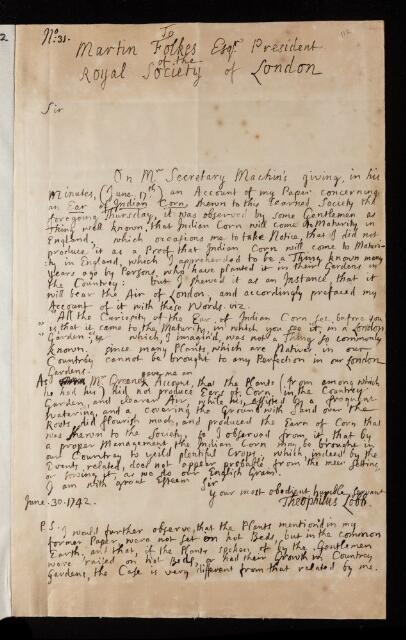 No. 31.
112
2
To
Martin Folkes Esqr. President
of the
Royal Society of London
Sir
On Mr. Secretary Machin's giving, in his
Minutes, (June, 17th) an Account of my Paper concerning
an Ear of Indian Corn, shewn to this Learned Society the
foregoing Thursday, it was observed by some Gentlemen as a
Thing well known, that Indian Corn will come to Maturity in
England, which occasions me to take Notice, that I did not
produce it as a Proof that Indian Corn will come to Maturi-
ty in England, which I apprehended to be a Thing known many
years ago by Persons, who have planted it in their Gardens in
the Country: but I shewed it as an Instance, that it
will bear the Air of London, and accordingly prefaced my
Account of it with these Words. viz.
"All the Curiosity of the Ear of Indian Corn set before you
"is that it came to the Maturity, in which you see it, in a London
"Garden; which, I imagin'd, was not a Thing so commonly
known since many Plants, which are Natives in our
Country, cannot be brought to any Perfection in our London
Gardens.
As Mr. Greene gave me an Account, that the Plants (from among which
he had his) did not produce Ears of Corn in the Country
Garden, and clearer Air, while his, assisted by a frequent
Watering, and a covering the Ground with Sand over the
Roots did flourish much, and produced the Earn of Corn that
was shewn to the Society, so I observed from it, that by
a proper Management the Indian Corn may be brought in
our Country to yeild plentiful Crops, which, indeed by the
Events related, does not appear probable from the meer Setting
or sowing it, as we do our English Grain.
I am with great Esteem Sir
your most obedient humble Servant
June. 30. 1742. Theophilus Lobb.
P.S. I would further observe, that the Plants mention'd in my
former Paper were not set on hot Beds, but in the common
Earth, and that, if the Plants spoken of by the Gentlemen
were raised on hot Beds, or had their Growth in Country
Gardens, the Case is very different from that related by me.